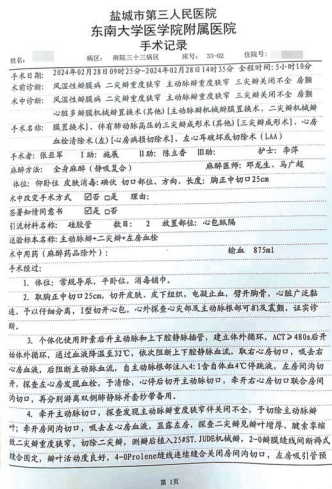 盐城市第三人民医院
东南大学医学院附属医院
手术记录
姓名: 病区: 南院三十三病区 床号: 33-02 住院号:
手术日期: 2024年02月28日09时25分~2024年02月28日14时35分 全程时间:5小时10分
术前诊断: 风湿性瓣膜病 二尖瓣重度狭窄 主动脉瓣重度狭窄 三尖瓣关闭不全 房颤
术中诊断: 风湿性瓣膜病 二尖瓣重度狭窄 主动脉瓣重度狭窄 三尖瓣关闭不全 房颤
心脏多瓣膜机械瓣置换术(其他)[主动脉机械瓣膜置换术、二尖瓣机械瓣
手术名称: 膜置换术]、伴有肺动脉高压的三尖瓣成形术(其他)[三尖瓣成形术]、心房
血栓清除术(左)[心房病损切除术]、左心耳破坏或切除术(LAA)
手术者: 张亚军 I助: 施展 II助: 陈立香 III助: 护士: 李萍
麻醉方法: 全身麻醉(静吸复合) 麻醉医师: 邓龙生、马广超
体位: 仰卧位 皮肤消毒:碘伏 切口部位、方向、长度: 胸正中切口25cm
术中改变手术方式 ☑否 □是 理由:
签署知情同意书 ☑是 □否
引流材料名称: 硅胶管 数目: 2 放置部位: 心包纵隔
送检标本名称: 主动脉瓣+二尖瓣+左房血栓
术中用药(麻醉药品除外): 输血 875ml
手术经过:
1. 体位: 常规导尿, 平卧位, 消毒铺巾。
2. 取胸正中切口25cm, 切开皮肤、皮下组织, 电凝止血, 劈开胸骨, 心脏广泛黏
连, 予以仔细分离, I型切开心包, 心外探查心尖部及主动脉根部可扪及震颤, 证实诊
断。
3. 个体化使用肝素后升主动脉和上下腔静脉插管, 建立体外循环, ACT≥480s后开
始体外循环, 通过血液降温至32℃, 依次阻断上下腔静脉血流, 取右心房切口, 吸去右
心房血液, 后阻断主动脉血流, 自主动脉根部注入4:1含自体血4℃停跳液, 左房间沟切
开, 探查左心房发现血栓, 予清除, 心停后切开主动脉切口, 牵开右心房切口联合房间
沟切口, 再分别游离双侧肺静脉并套纱带备用。
4. 牵开主动脉切口, 探查发现主动脉瓣重度狭窄伴关闭不全, 予切除主动脉瓣
叶; 牵开房间沟切口, 吸去左心房血液, 显露左房, 探查二尖瓣见瓣叶增厚、腱索挛缩
致二尖瓣重度狭窄, 切除二尖瓣, 测瓣后植入25#ST.JUDE机械瓣, 2-0瓣膜缝线间断褥式
缝合固定, 瓣叶活动度良好, 4-0Prolene缝线连续缝合关闭房间沟切口, 左房吸引管预
第 1页